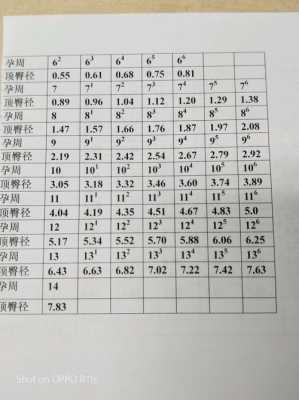 孕周 6² 6³ 6⁴ 6⁵ 6⁶
顶臀径 0.55 0.61 0.68 0.75 0.81
孕周 7 7¹ 7² 7³ 7⁴ 7⁵ 7⁶
顶臀径 0.89 0.96 1.04 1.12 1.20 1.29 1.38
孕周 8 8¹ 8² 8³ 8⁴ 8⁵ 8⁶
顶臀径 1.47 1.57 1.66 1.76 1.87 1.97 2.08
孕周 9 9¹ 9² 9³ 9⁴ 9⁵ 9⁶
顶臀径 2.19 2.31 2.42 2.54 2.67 2.79 2.92
孕周 10 10¹ 10² 10³ 10⁴ 10⁵ 10⁶
顶臀径 3.05 3.18 3.32 3.46 3.60 3.74 3.89
孕周 11 11¹ 11² 11³ 11⁴ 11⁵ 11⁶
顶臀径 4.04 4.19 4.35 4.51 4.67 4.83 5.0
孕周 12 12¹ 12² 12³ 12⁴ 12⁵ 12⁶
顶臀径 5.17 5.34 5.52 5.70 5.88 6.06 6.25
孕周 13 13¹ 13² 13³ 13⁴ 13⁵ 13⁶
顶臀径 6.43 6.63 6.82 7.02 7.22 7.42 7.63
孕周 14
顶臀径 7.83
Shot on OPPO R11s